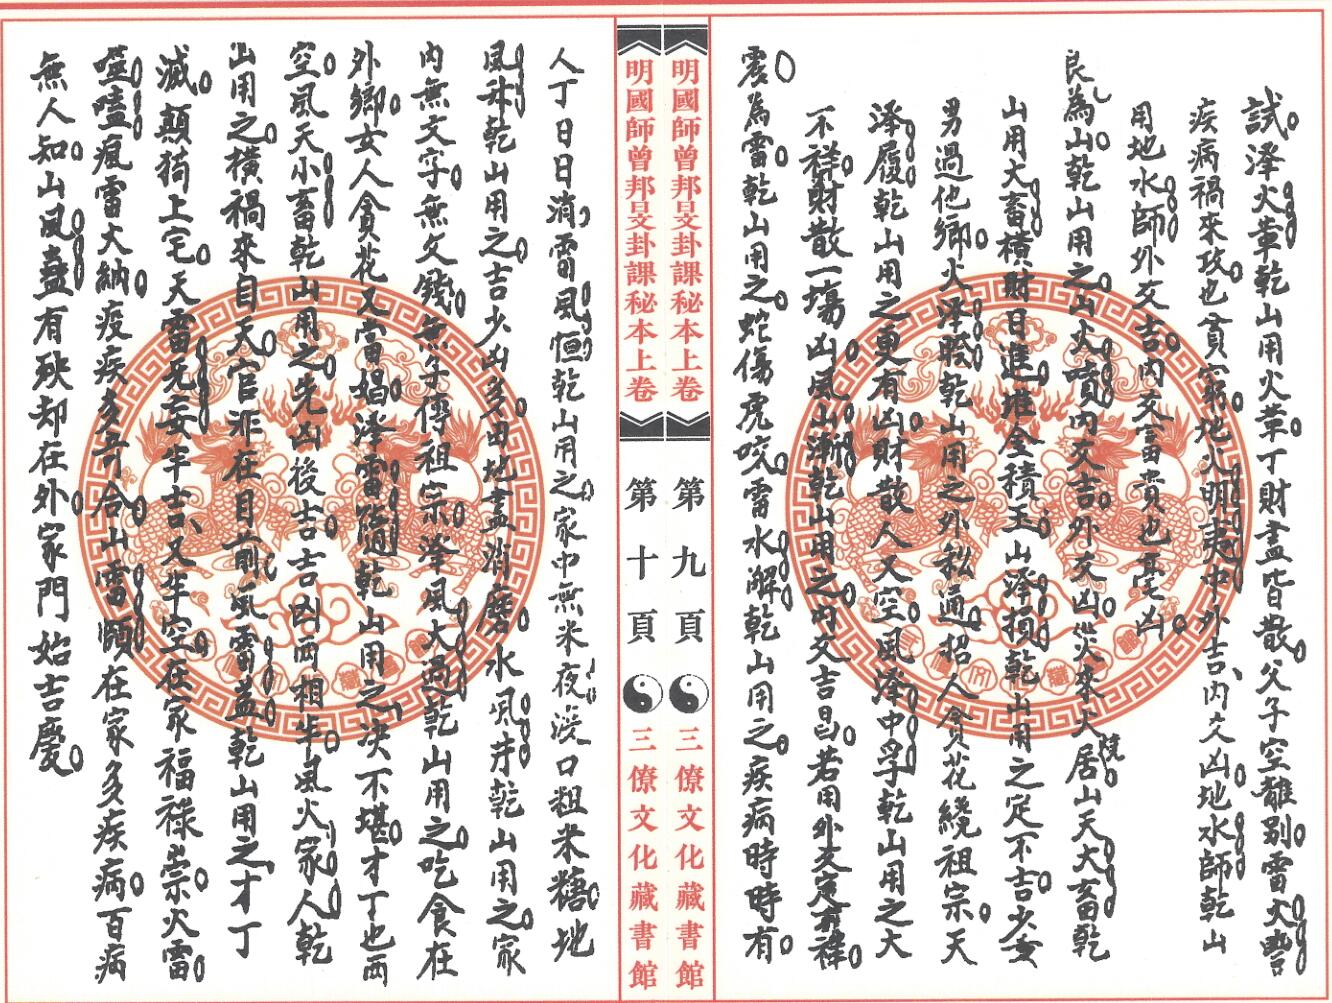 試澤火革乾山用火革丁財盡皆散父子空離别雷火豐
疾病禍來攻也貧窮地火明夷中外吉内爻凶地水師乾山
用地水師外爻吉内爻富貴也真宅凶
艮為山乾山用之山火賁内爻吉外爻凶災來大居山天大畜乾
山用大畜横財日進堆金積玉山澤損乾山用之定不吉少妻
男過他鄉火澤睽乾山用之外私通招人貪花繞祖宗天
澤履乾山用之更有凶財散人又空風澤中孚乾山用之大
不祥財散一場凶風山漸乾山用之内爻吉昌若用外爻定有祥
震為雷乾山用之蛇傷虎咬雷水解乾山用之疾病時時有
明國師曾邦旻卦課秘本上卷
第九頁
三僚文化藏書館
明國師曾邦旻卦課秘本上卷
第十頁
三僚文化藏書館
人丁日日消雷風恒乾山用之家中無米夜洗口粗米糖地
風升乾山用之吉少凶多田地盡消磨水風井乾山用之家
内無文字無文錢無子傳祖宗澤風大過乾山用之吃食在
外鄉女人貪花又當娼澤雷隨乾山用之决不堪才丁也兩
空風天小畜乾山用之先凶後吉吉凶兩相半風火家人乾
山用之橫禍來自天官非在目前風雷益乾山用之才丁
滅顛狗上宅天雷无妄半吉又半空在家福祿崇火雷
噬嗑瘋雷大納疫疾多奇合山雷頤在家多疾病百病
無人知山風蠱有殃却在外家門始吉慶